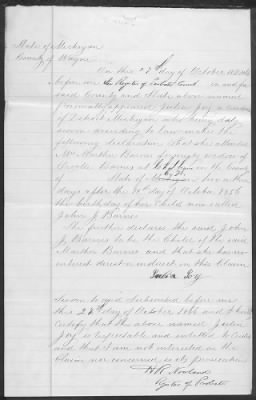 State of Michigan
County of Wayne
On this 23rd day of October 1866
before me the Register of Probate Court in and for
said County and State above named
personally appeared Julia Joy a resident
of Detroit Michigan who being duly
sworn according to law makes the
following declaration That she attended
Mrs Martha Barnes formerly widow of
Charles Barnes at in the County
of State of two or three
days after the 30th day of October 1856
the birthday of her child now called
John J Barnes
She further declares the said John
J. Barnes to be the Child of the said
Martha Barnes and that she has no
interest direct or indirect in this Claim
Julia Joy
Sworn to and subscribed before me
this 23rd day of October 1866 and I hereby
Certify that the above named Julia
Joy is respectable and entitled to Credit
and that I am not interested in this
Claim nor concerned in its prosecution
H R Nowland
Register of Probate